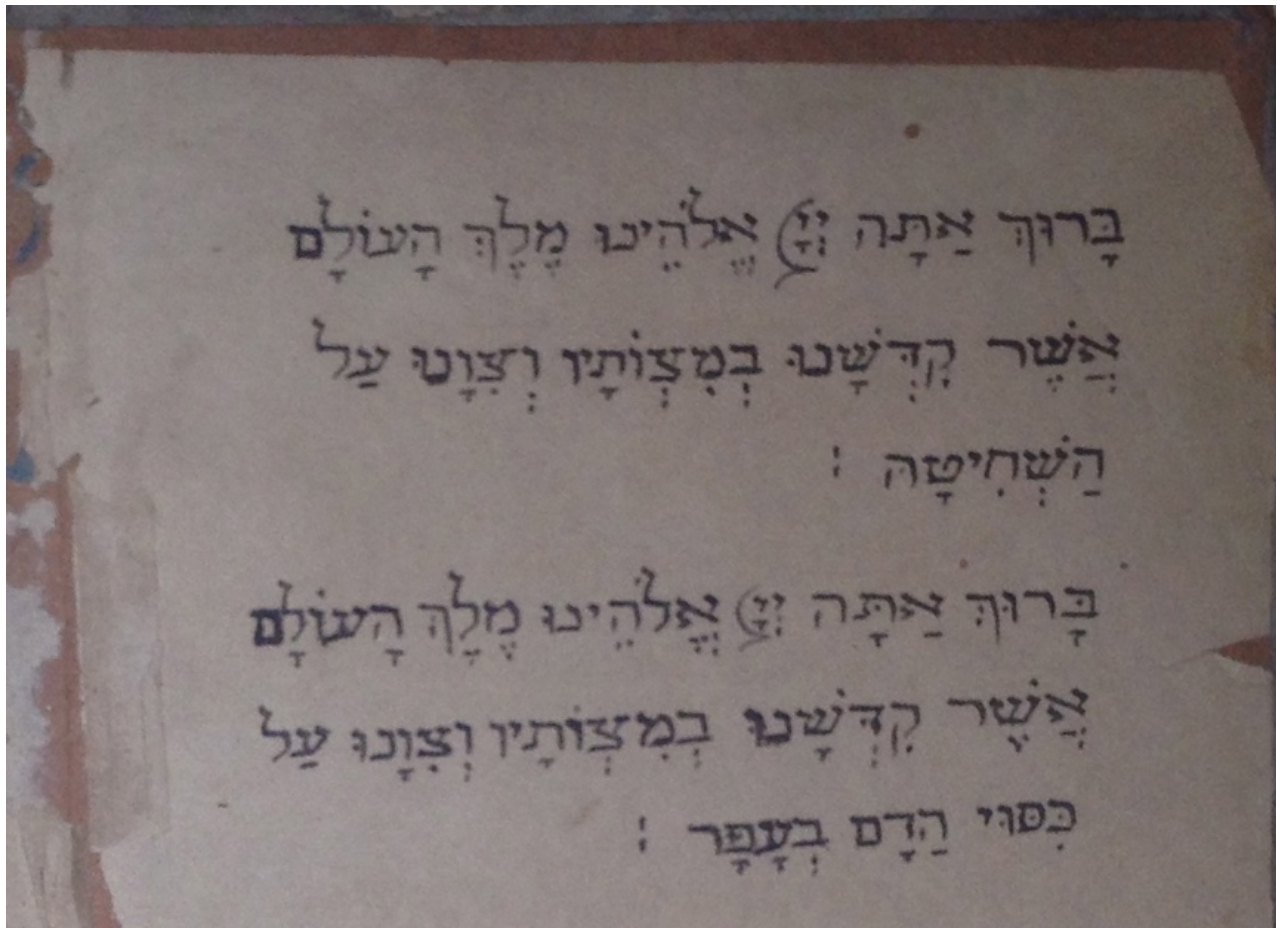 בָּרוּךְ אַתָּה יְיָ אֱלֹהֵינוּ מֶלֶךְ הָעוֹלָם
אֲשֶׁר קִדְּשָׁנוּ בְּמִצְוֹתָיו וְצִוָנוּ עַל
הַשְׁחִיטָה :
בָּרוּךְ אַתָּה יְיָ אֱלֹהֵינוּ מֶלֶךְ הָעוֹלָם
אֲשֶׁר קִדְּשָׁנוּ בְּמִצְוֹתָיו וְצִוָנוּ עַל
כִּסּוּי הַדָם בְּעָפָר :